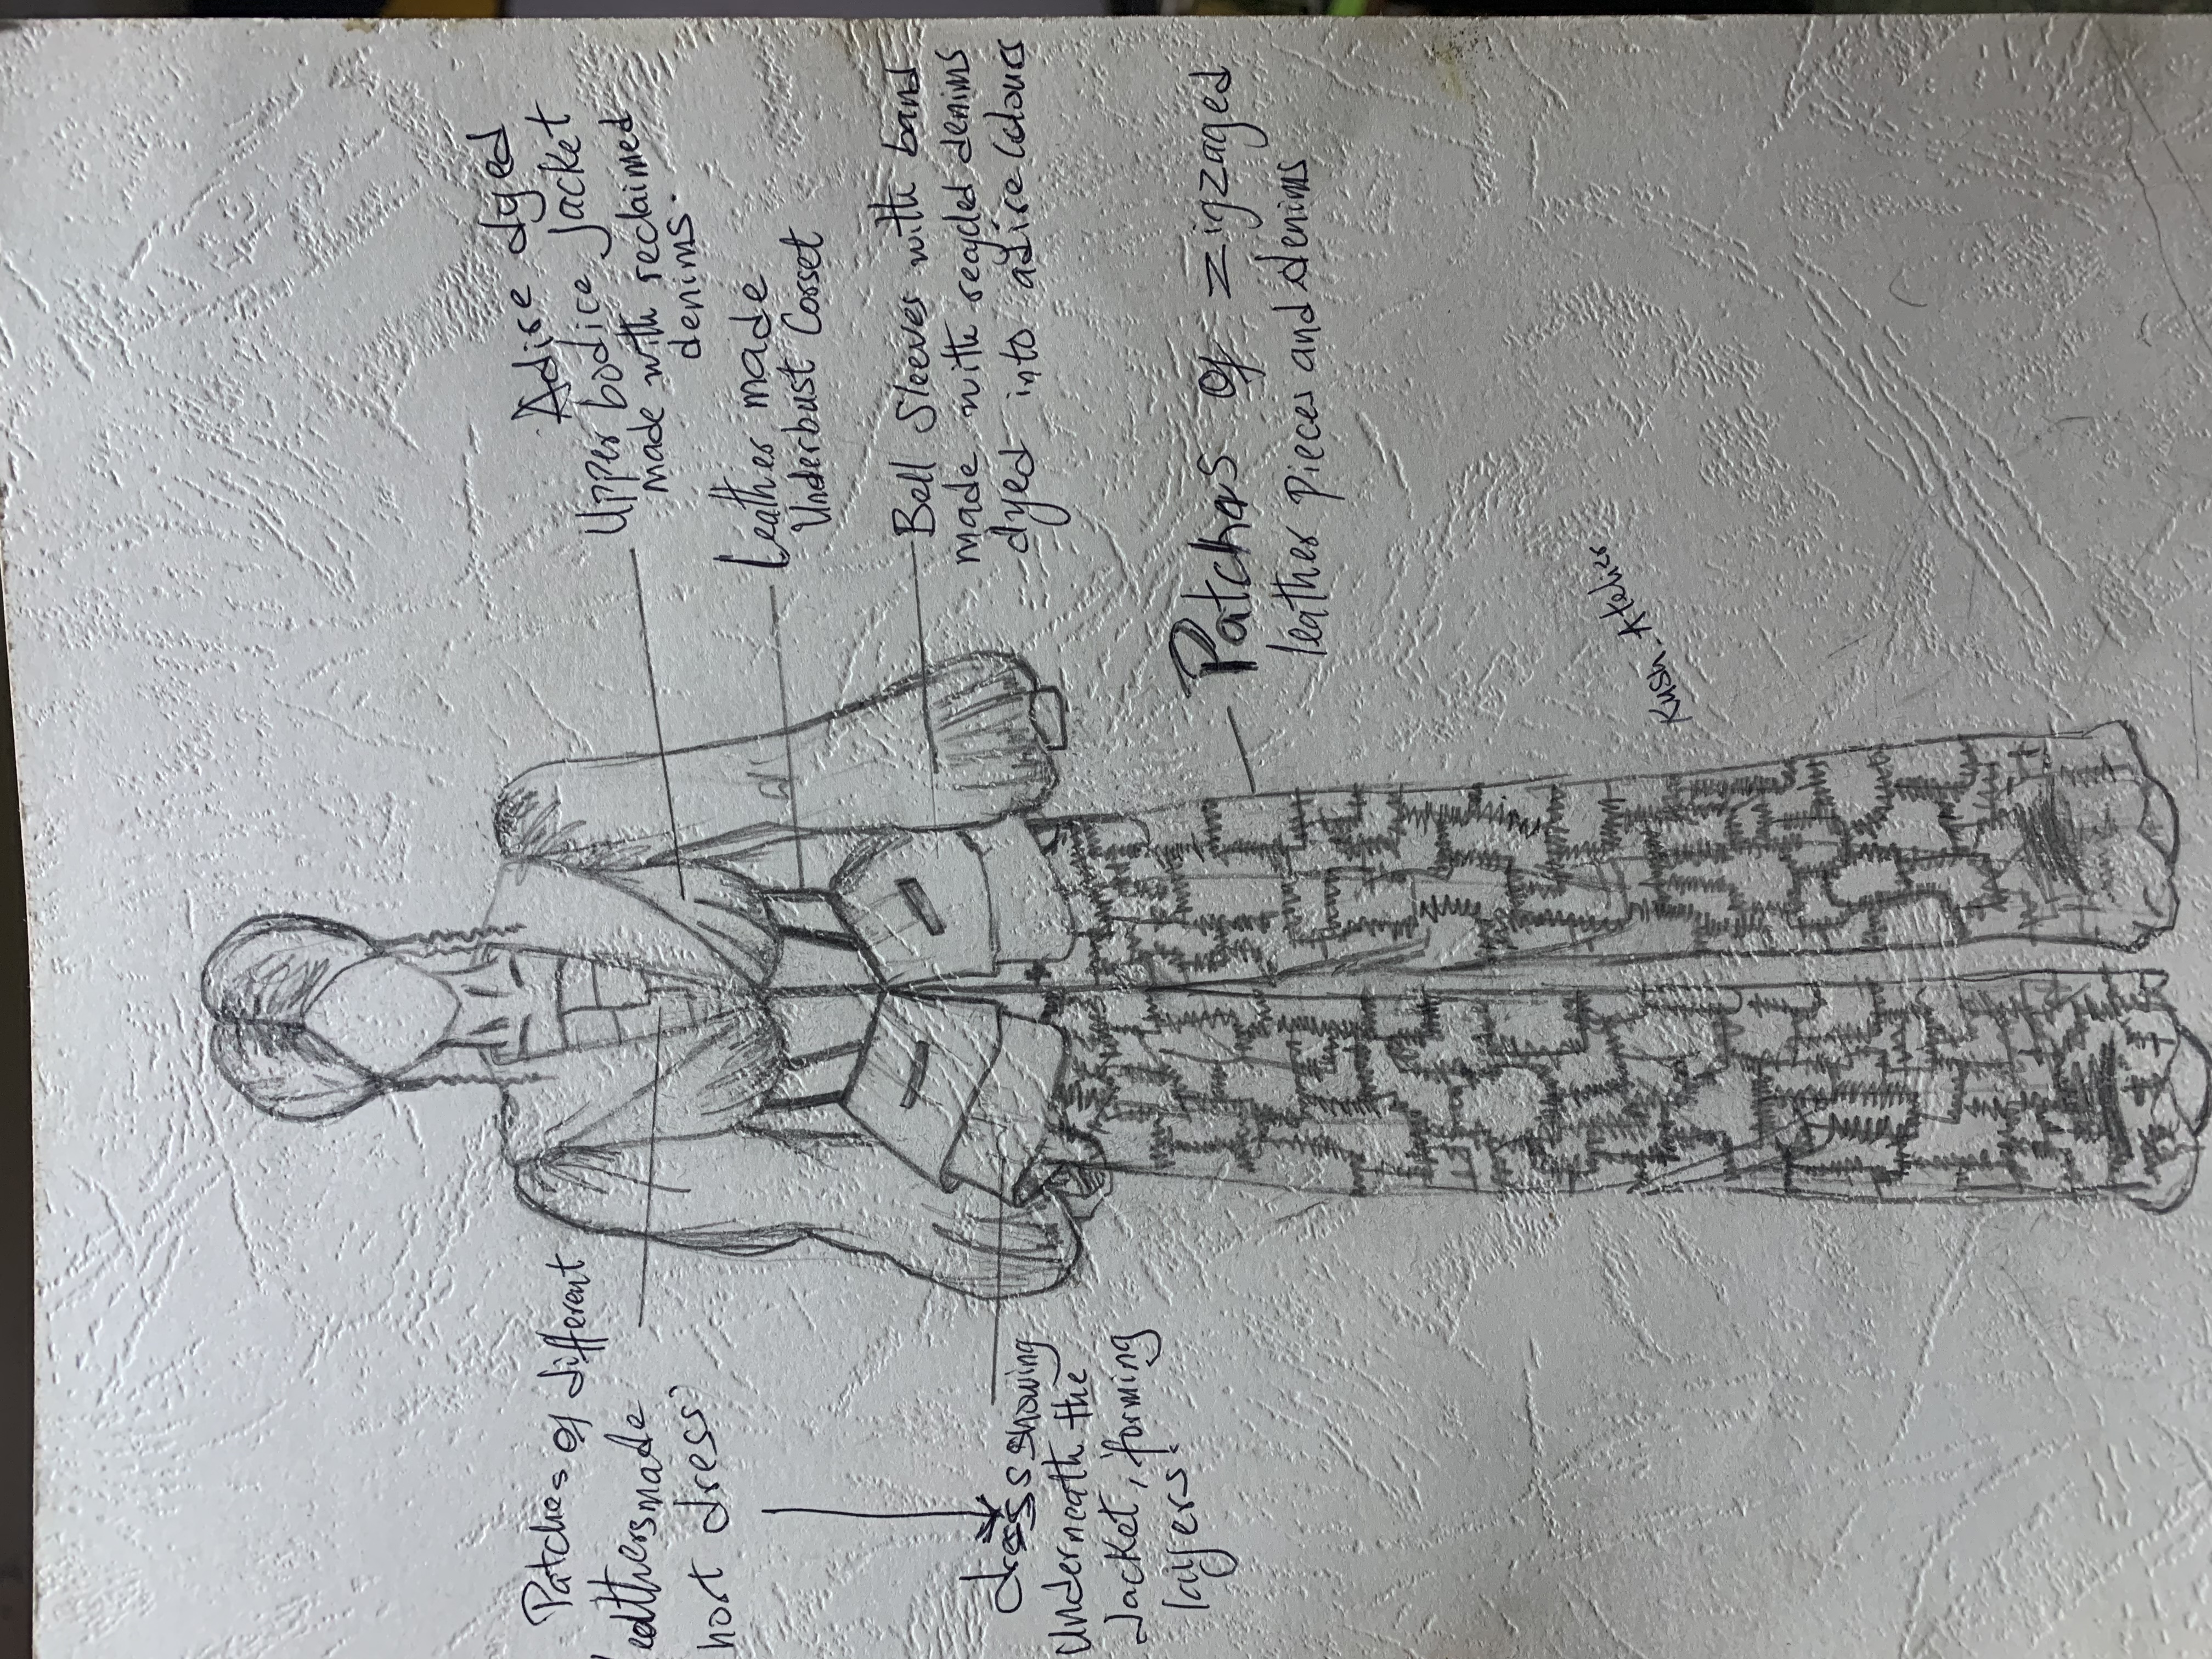 Adire dyed
Upper bodice Jacket
made with reclaimed
denims.
Leather made
Underbust Corset
Bell Sleeves with band
made with recycled denims
dyed into adire colours
Patches of zigzaged
leather pieces and denims
Kush. Atelier
Patches of different
leathersmade
hort dress
dress showing
Underneath the
Jacket, forming
layers